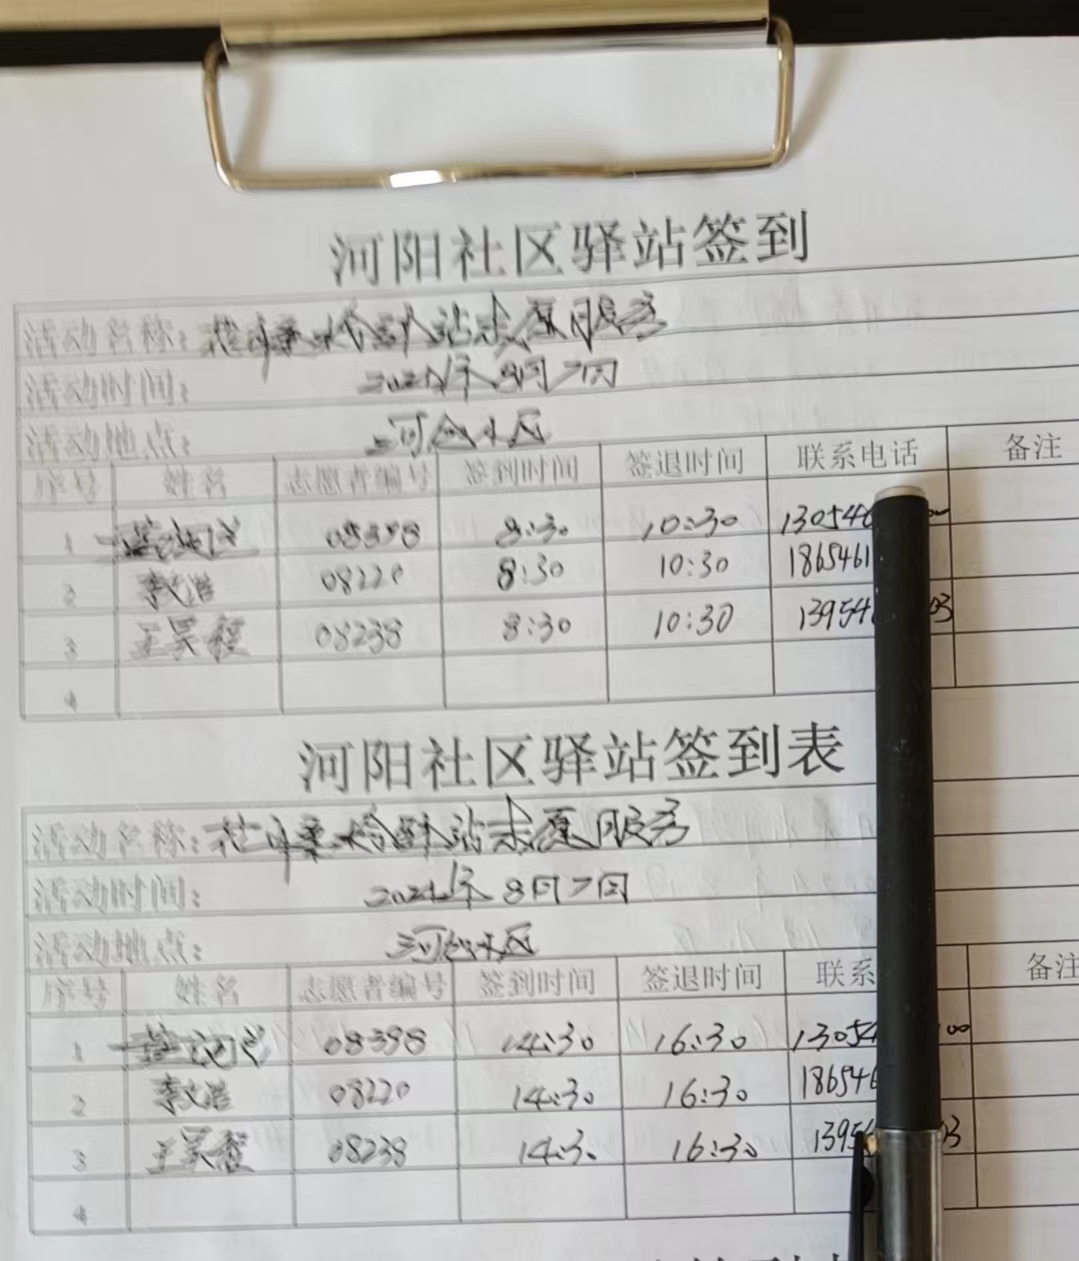 河阳社区驿站签到
活动名称: 站志愿服务
活动时间: 8月7日
活动地点: 小区
序号 姓名 志愿者编号 签到时间 签退时间 联系电话 备注
1 08398 8:30 10:30 130546 00
2 李文浩 08220 8:30 10:30 1865461
3 王昊程 08238 8:30 10:30 13954 03
4
河阳社区驿站签到表
活动名称: 站志愿服务
活动时间: 8月7日
活动地点: 小区
序号 姓名 志愿者编号 签到时间 签退时间 联系
备注
1 08398 14:30 16:30 13054 00
2 李文浩 08220 14:30 16:30 186546
3 王昊程 08238 14:30 16:30 1395 03
4